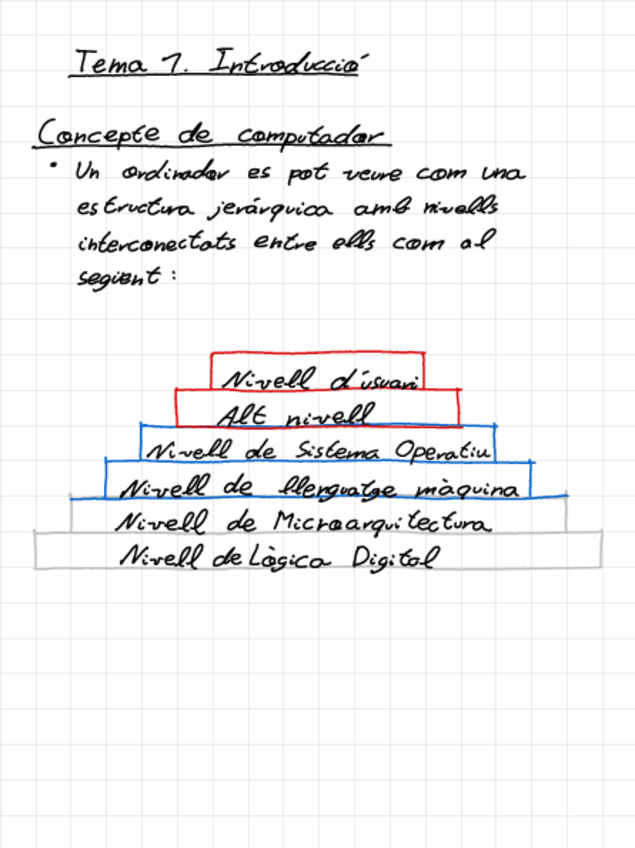 Tema 1. Introducció
Concepte de computador
• Un ordinador es pot veure com una
estructura jeràrquica amb nivells
interconectats entre ells com al
segient:
Nivell d'usuari
Alt nivell
Nivell de Sistema Operatiu
Nivell de llenguatge màquina
Nivell de Microarquitectura
Nivell de Lògica Digital